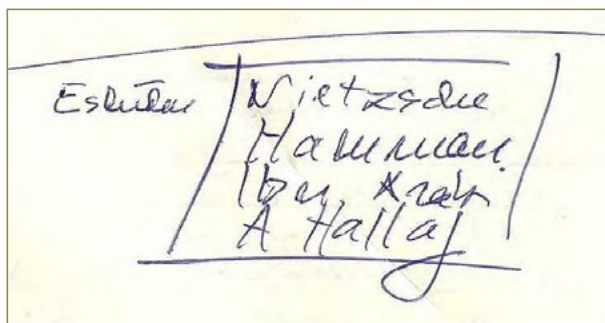 Nietzsche
Hamman
Ibn Arabi
A Hallaj